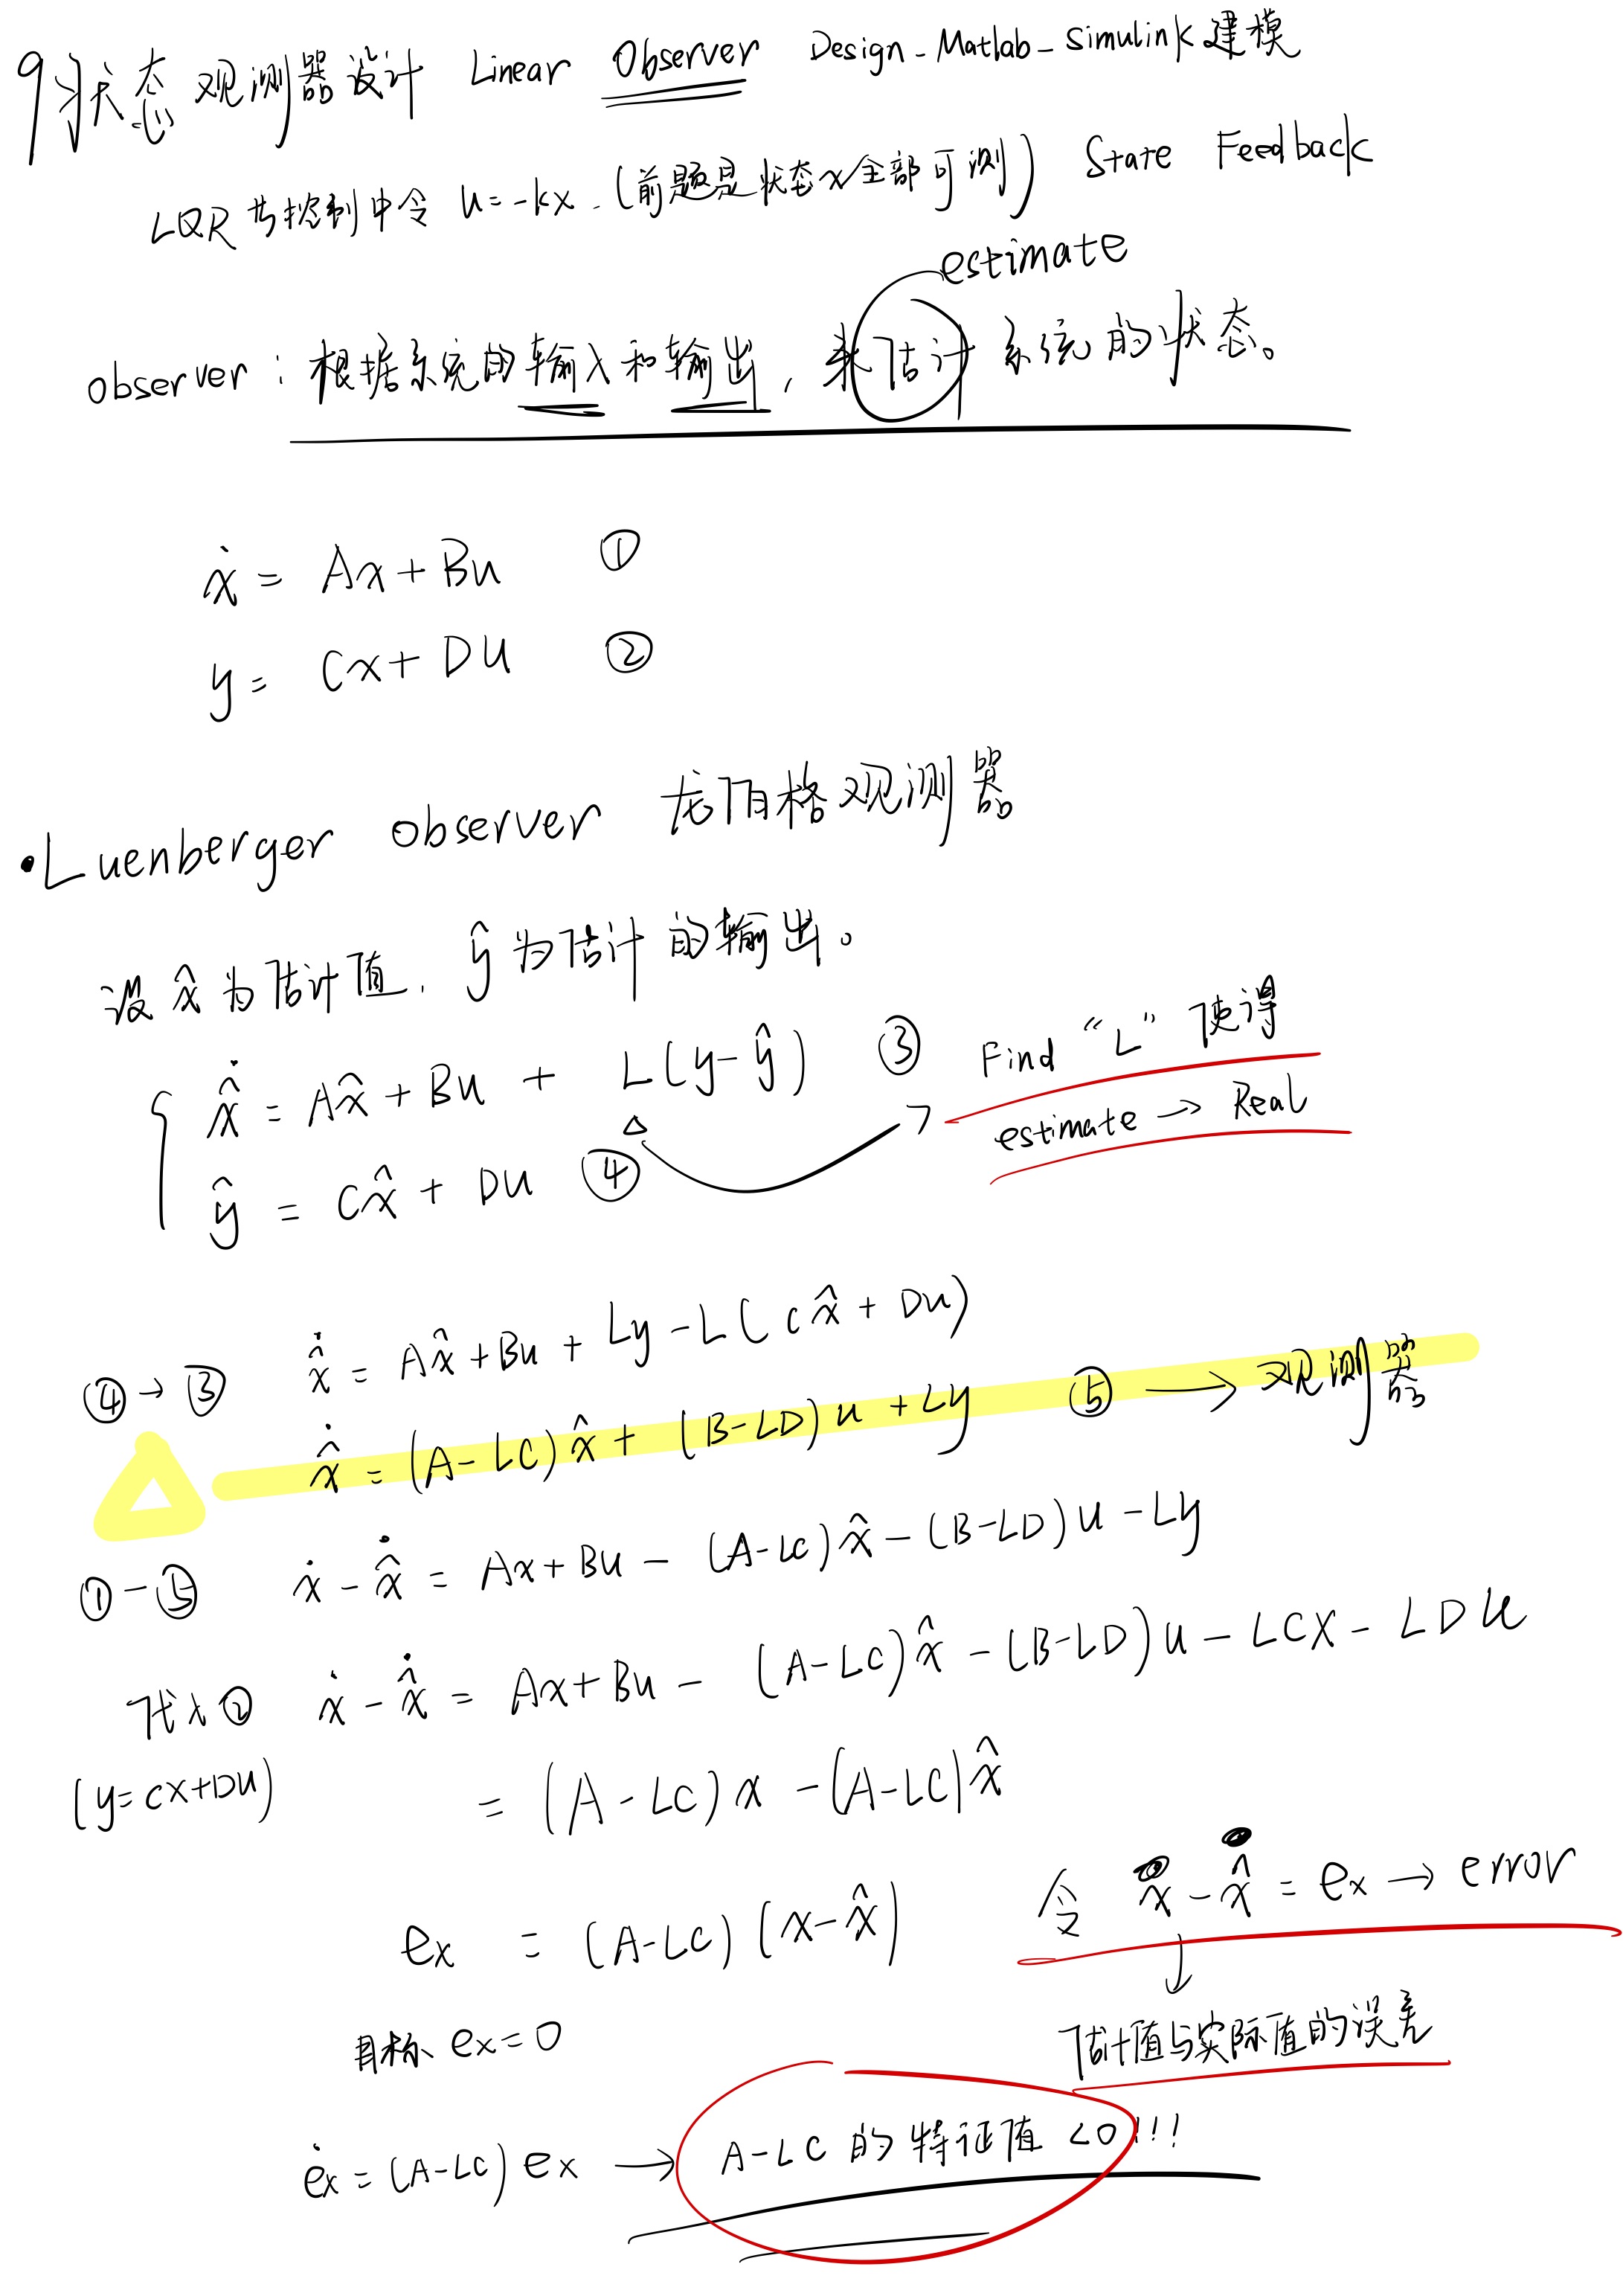 9 状态观测器设计 Linear Observer Design - Matlab - Simulink 建模
LQR 控制中令 u = -kx. (前题是状态x全部可测) State Feedback
estimate
observer : 根据系统的输入和输出, 来估计系统的状态。
ẋ = Ax + Bu ①
y = Cx + DU ②
·Luenberger observer 龙伯格观测器
设 x̂ 为估计值, ŷ 为估计的输出。
x̂̇ = Ax̂ + Bu + L(y-ŷ) ③ Find "L" 使得
estimate → Real
ŷ = Cx̂ + DU ④
④→③ x̂̇ = Ax̂ + Bu + Ly - L(Cx̂ + Du)
x̂̇ = (A-LC)x̂ + (B-LD)u + Ly ⑤ → 观测器
①-⑤ ẋ - x̂̇ = Ax + Bu - (A-LC)x̂ - (B-LD)u - Ly
代入② ẋ - x̂̇ = Ax + Bu - (A-LC)x̂ - (B-LD)u - LCX - LDU
(y=cx+Du) = (A-LC)x - (A-LC)x̂
ex = (A-LC)(x-x̂) 令 x - x̂ = ex → error
目标 ex = 0 估计值与实际值的误差
ėx = (A-LC)ex → A-LC 的特征值 <0!!!